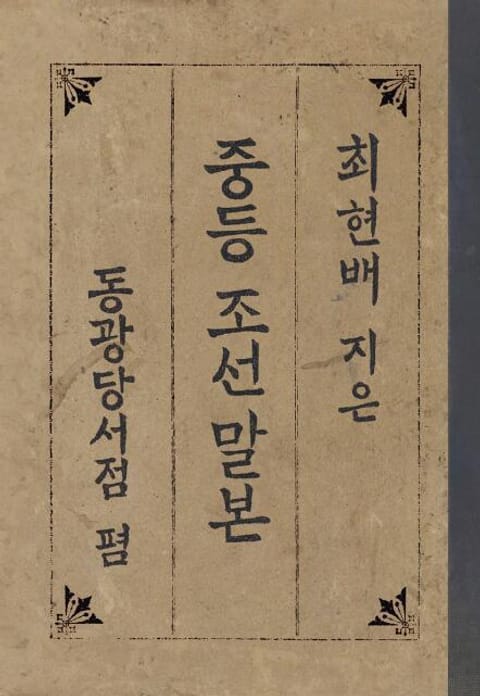 최현배 지은
중등 조선말본
동광당서점 펌